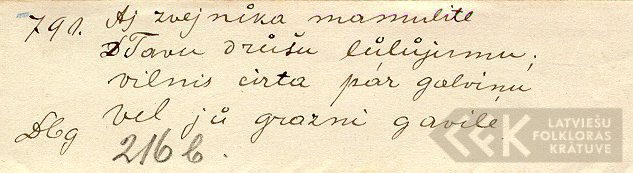 791. Aj zvejnůka mamulite
Tavu drůšu lůlůjumu;
vilnis cirta pār galviņu
Vel jů grazni gavilē,
Dbg 216 b.
LATVIEŠU
FOLKLORAS
KRĀTUVE